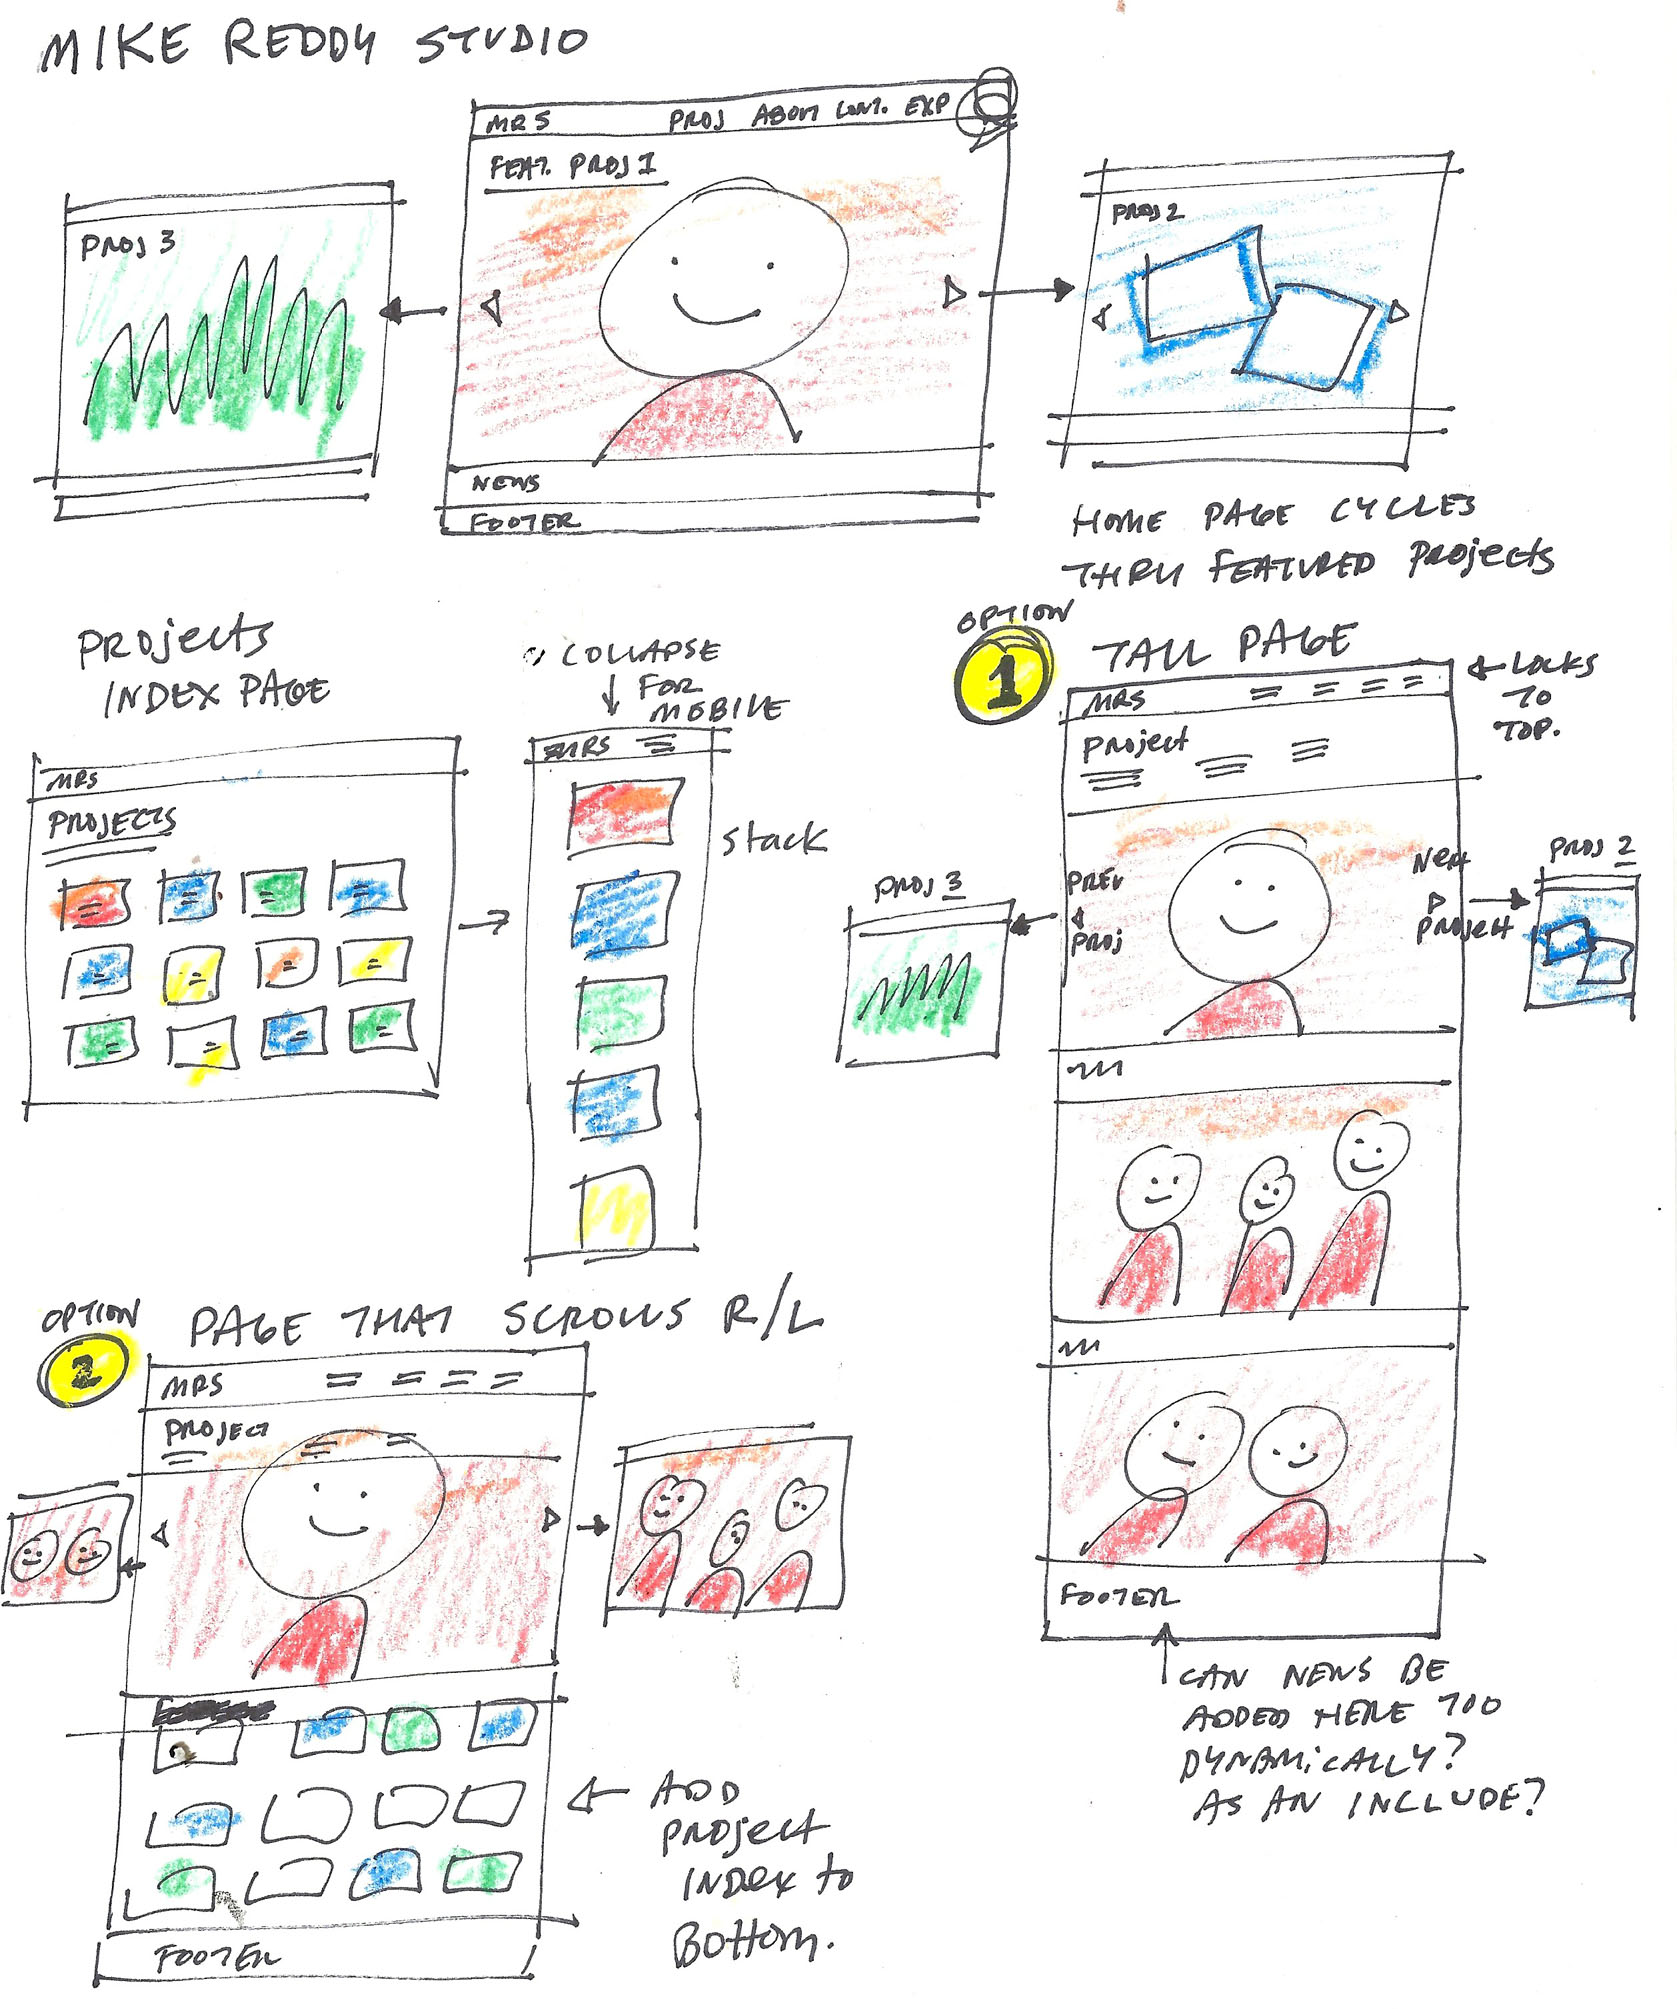 MIKE REDDY STUDIO
MRS PROJ ABOUT CONT. EXP
FEAT. PROJ 1
NEWS
FOOTER
PROJ 3
PROJ 2
HOME PAGE CYCLES
THRU FEATURED PROJECTS
PROJECTS
INDEX PAGE
MRS
PROJECTS
COLLAPSE
FOR
MOBILE
MRS
stack
OPTION
1
TALL PAGE
LOCKS
TO
TOP.
MRS
PROJECT
PREV
PROJ
NEXT
PROJECT
PROJ 3
PROJ 2
FOOTER
CAN NEWS BE
ADDED HERE TOO
DYNAMICALLY?
AS AN INCLUDE?
OPTION
2
PAGE THAT SCROLLS R/L
MRS
PROJECT
ADD
PROJECT
INDEX to
BOTTOM.
FOOTER